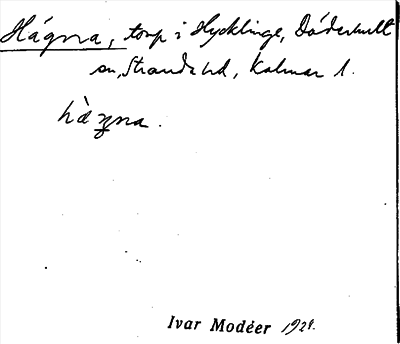 Hägna, torp i Hycklinge, Döderhult
sn, Stranda hd, Kalmar l.
hàgna.
Ivar Modéer 1929.